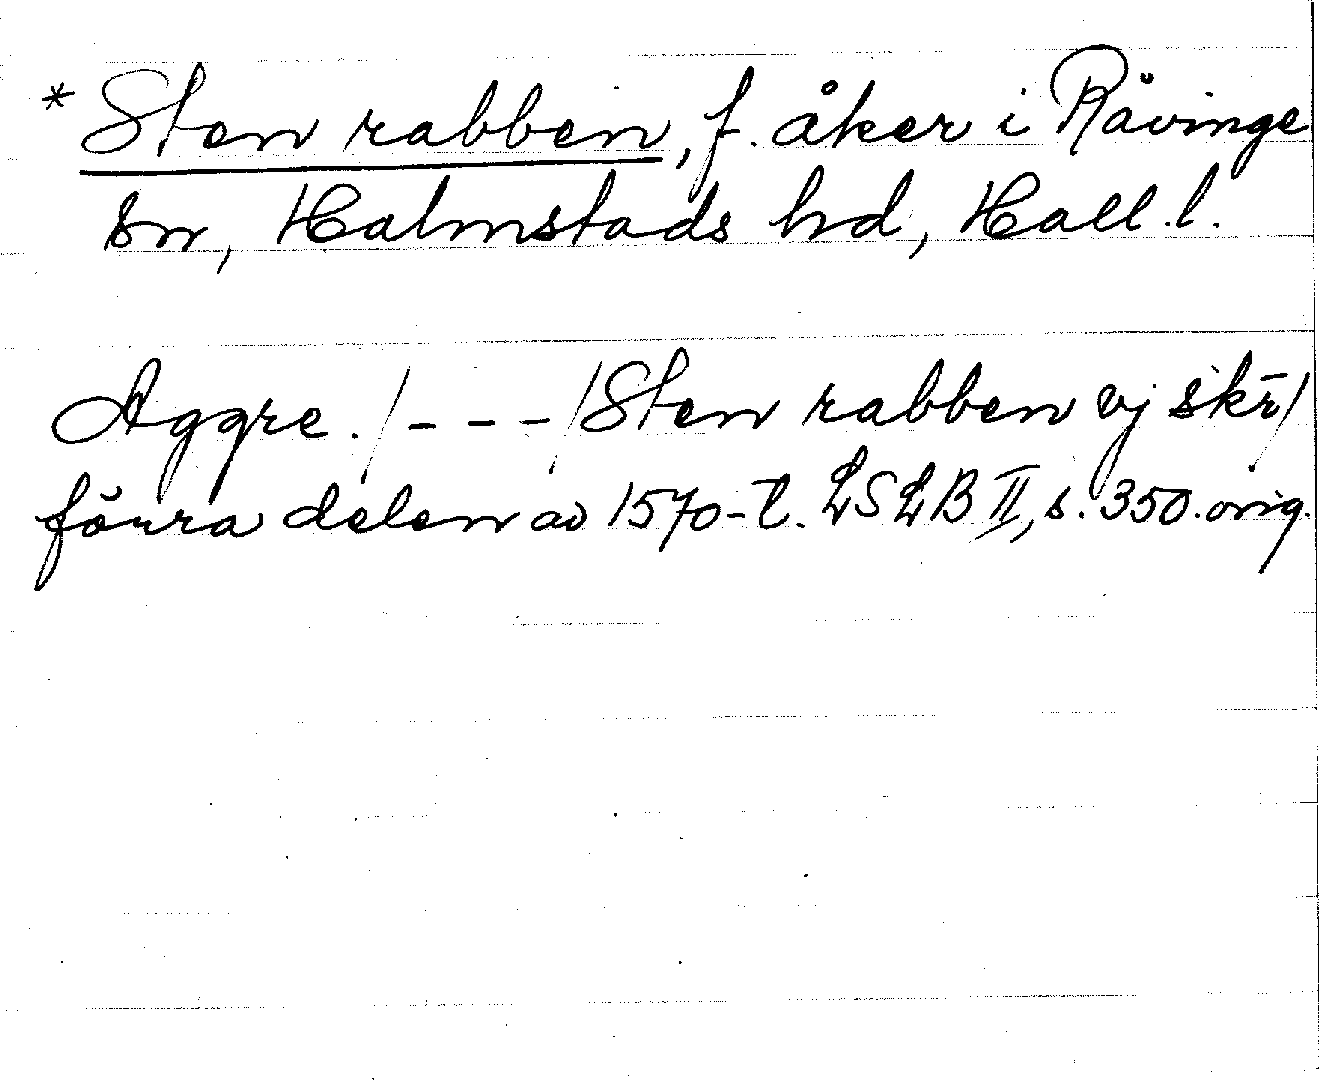 * Sten rabben, f. åker i Rävinge
sn, Halmstads hd, Hall. l.
Aggre. /---/ Sten rabben vj skr̄ /
förra delen av 1570-t. LSLB II, s. 350. orig.